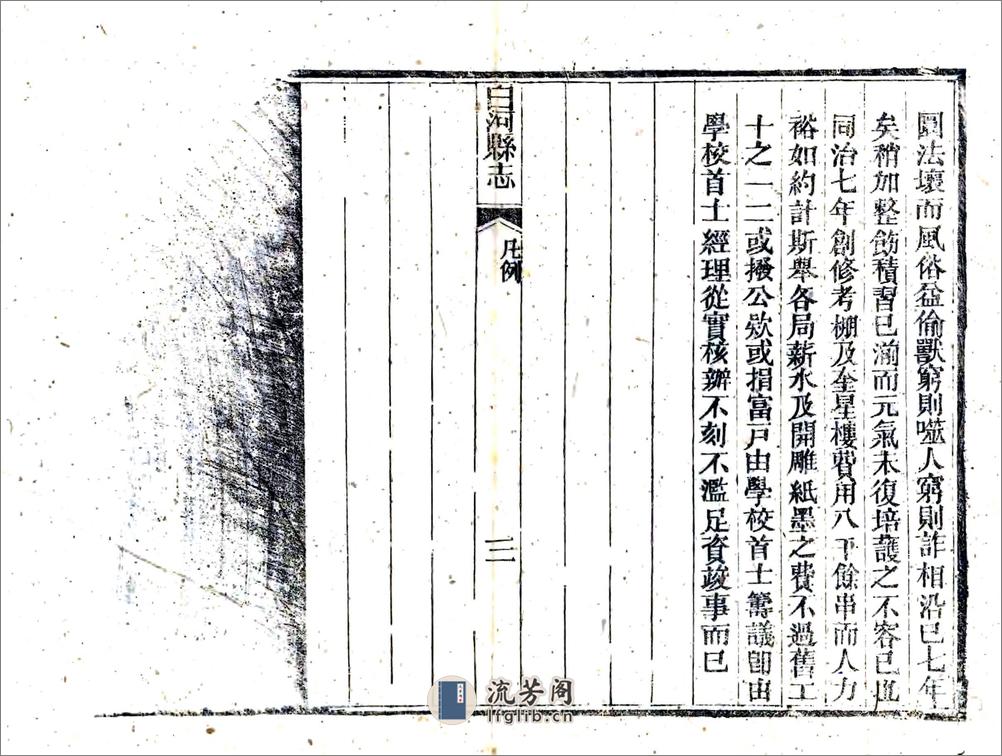 圜法壞而風俗益偷獸窮則噬人窮則詐相沿已七年
矣稍加整飭積習已湔而元氣未復培護之不容已也
同治七年創修考棚及奎星樓費用八千餘串而人力
裕如約計斯舉各局薪水及開雕紙墨之費不過舊工
十之一二或撥公欵或捐富戸由學校首士籌議卽由
學校首士經理從實核辦不刻不濫足資竣事而已
白河縣志
凡例
三
流芳阁
lfglib.cn